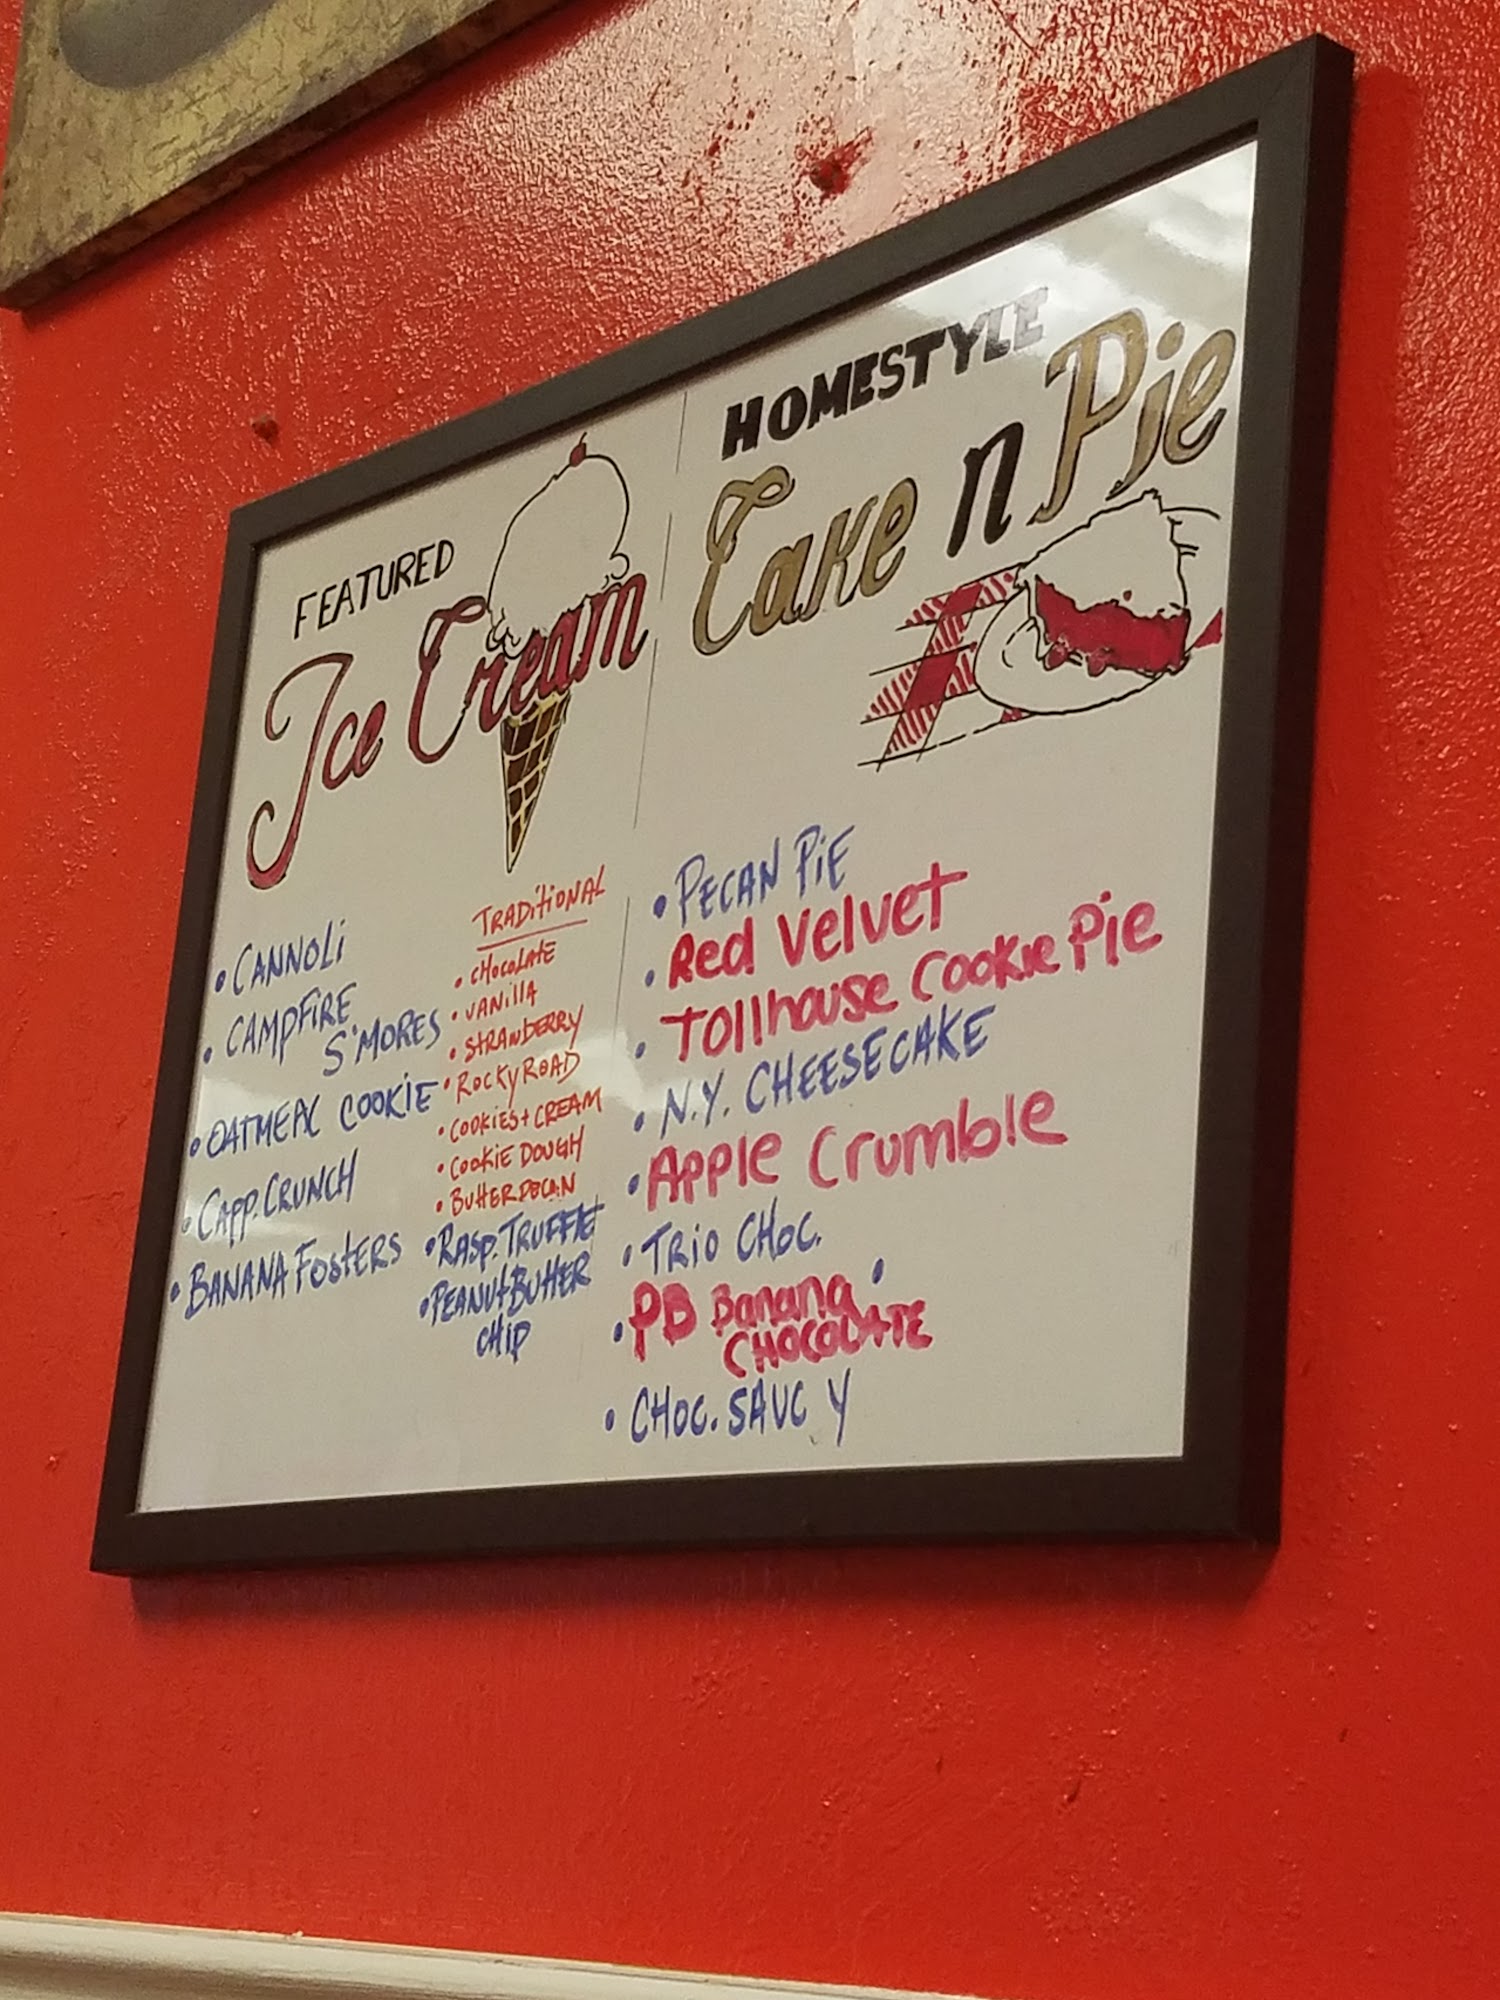 FEATURED
Ice Cream
• CANNOLi
• CAMPFIRE
S'MORES
• OATMEAL COOKIE
• CAPP. CRUNCH
• BANANA FOSTERS
TRADITIONAL
• CHOCOLATE
• VANillA
• STRAWBERRY
• ROCKY ROAD
• COOKIES + CREAM
• COOKIE DOUGH
• BUTTER PECAN
• RASP. TRUFFLE
• PEANUT BUTTER
CHIP
HOMESTYLE
Cake n Pie
• PECAN PiE
• Red Velvet
• Tollhouse Cookie Pie
• N.Y. CHEESECAKE
• Apple Crumble
• TRIO CHOC.
• PB Banana
CHOCOLATE
• CHOC. SAUC Y